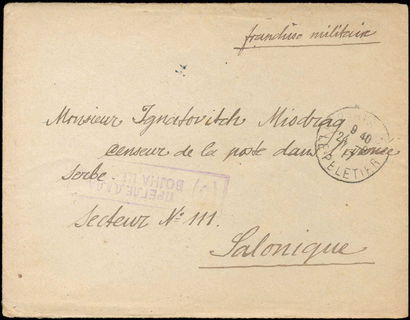 franchise militaire
Monsieur Ignatovitch Miodrag
censeur de la poste dans l'armée
serbe
Secteur No 111.
Salonique
9 40
24
LE PELETIER
ПРЕГЛЕДАНО
ВОЈНА